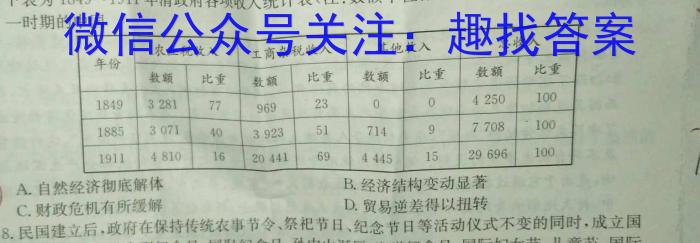 下表为1849—1911年清政府各项收入统计表
一时期的
微信公众号关注：趣找答案
年份 农业税收入 工商杂税收入 其他收入 总收入
数额 比重 数额 比重 数额 比重 数额 比重
1849 3 281 77 969 23 0 0 4 250 100
1885 3 071 40 3 923 51 714 9 7 708 100
1911 4 810 16 20 441 69 4 445 15 29 696 100
A. 自然经济彻底解体 B. 经济结构变动显著
C. 财政危机有所缓解 D. 贸易逆差得以扭转
8. 民国建立后,政府在保持传统农事节令、祭祀节日、纪念节日等活动仪式不变的同时,成立国